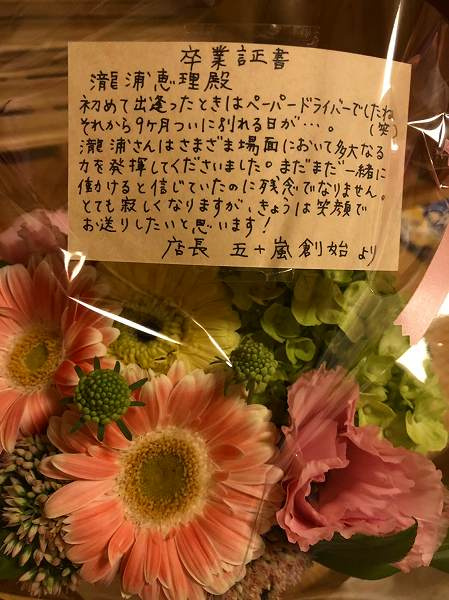 卒業証書
瀧浦恵理殿
初めて出逢ったときはペーパードライバーでしたね
それから9ヶ月ついに別れる日が…。(笑)
瀧浦さんはさまざま場面において多大なる
力を発揮してくださいました。まだまだ一緒に
働かけると信じていたのに残念でなりません。
とても寂しくなりますが、きょうは笑顔で
お送りしたいと思います!
店長 五十嵐創始より